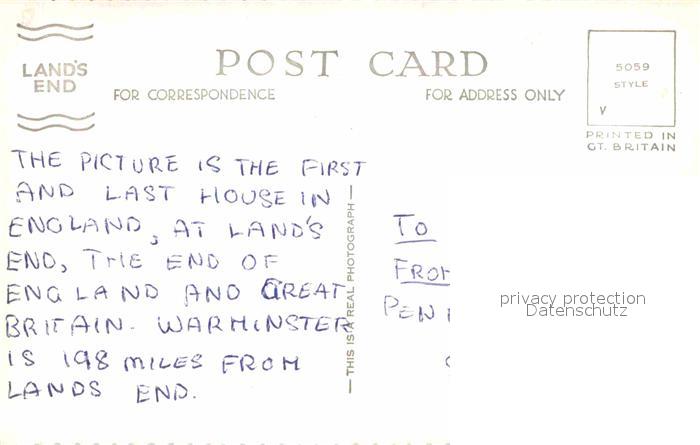 LAND'S
END
POST CARD
FOR CORRESPONDENCE
FOR ADDRESS ONLY
5059
STYLE
V
PRINTED IN
GT. BRITAIN
THE PICTURE IS THE FIRST
AND LAST HOUSE IN
ENGLAND, AT LAND'S
END, THE END OF
ENGLAND AND GREAT
BRITAIN. WARMINSTER
IS 198 MILES FROM
LANDS END.
— THIS IS A REAL PHOTOGRAPH —
TO
FROM
PEN
privacy protection
Datenschutz